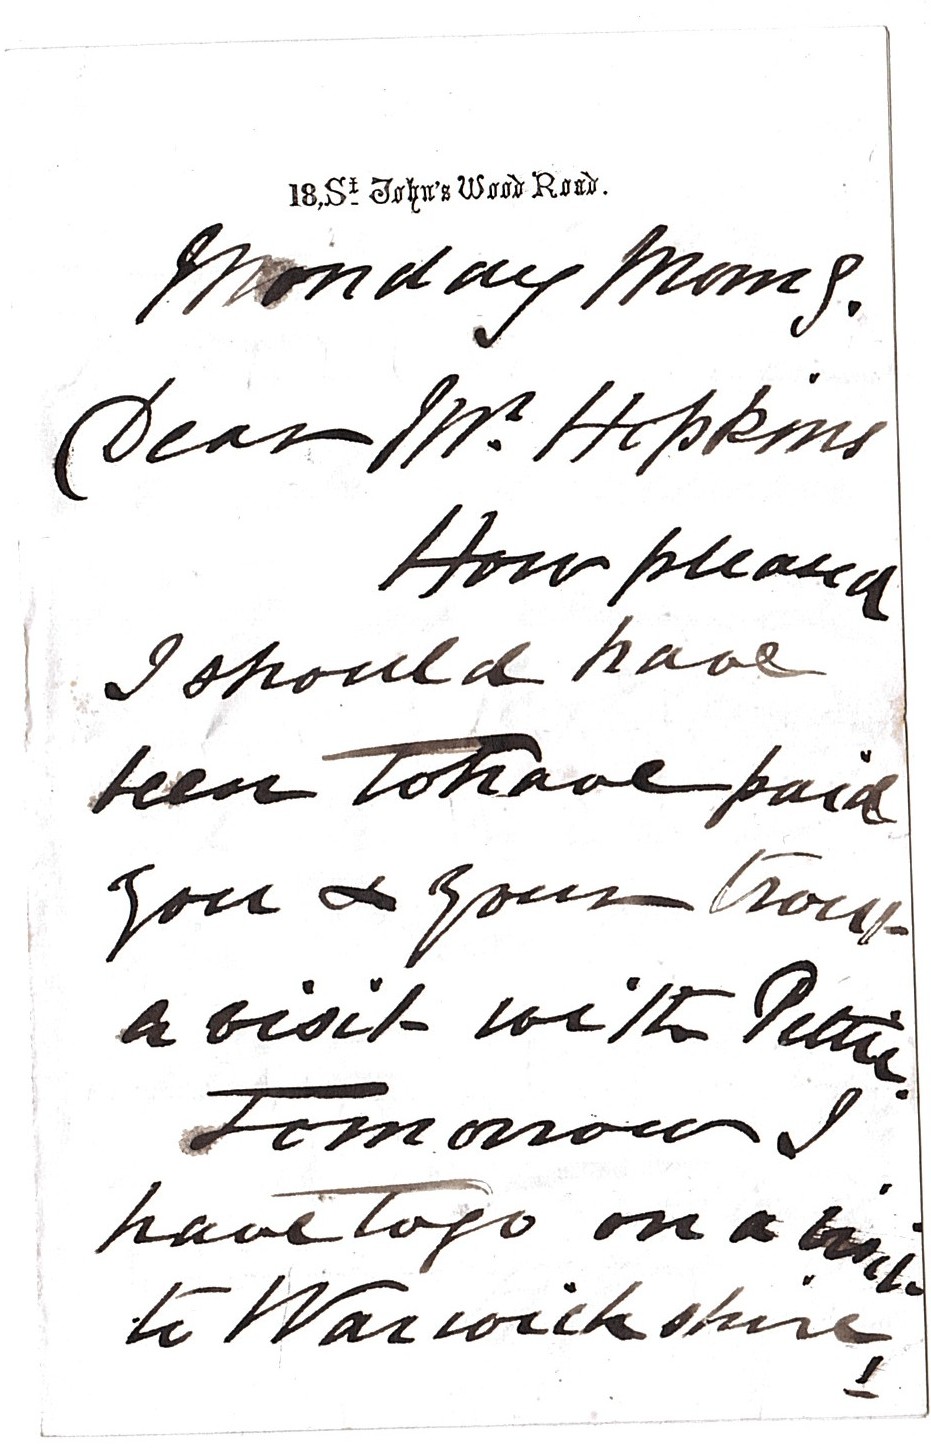 18, St. John's Wood Road.
Monday Morng.
Dear Mr. Hopkins
How pleased
I should have
been to have paid
you & your troup
a visit with Pettie.
Tomorrow I
have to go on a visit
to Warwickshire
!